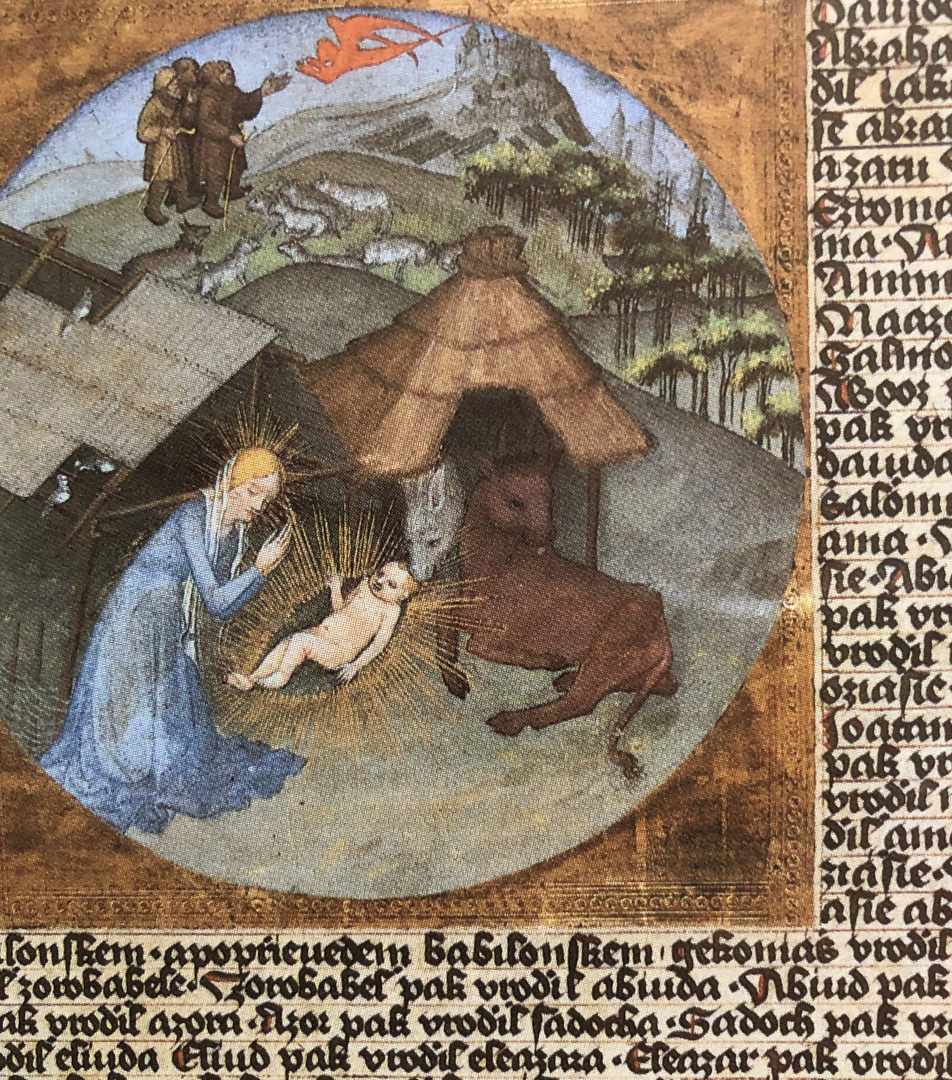 Dauid
Abraha
dil iak
ſe abra
azaru
Ezrom
ma · A
Amin
Maaz
Salmo
A Booz
pak vr
dauida
Salom
ama ·
ſie · Abi
pak vr
vrodil
oziaſie
Joatan
pak vr
vrodil
dil amo
ziaſie ·
aſie ab
ilonſkem · apoprieuedem babilonſkem · gekonias vrodil
zorobabele · Zorobabel pak vrodil abiuda · Abiud pak
ak vrodil azora · Azor pak vrodil ſadocha · Sadoch pak vr
odil eliuda Eliud pak vrodil eleazara · Eleazar pak vrodil